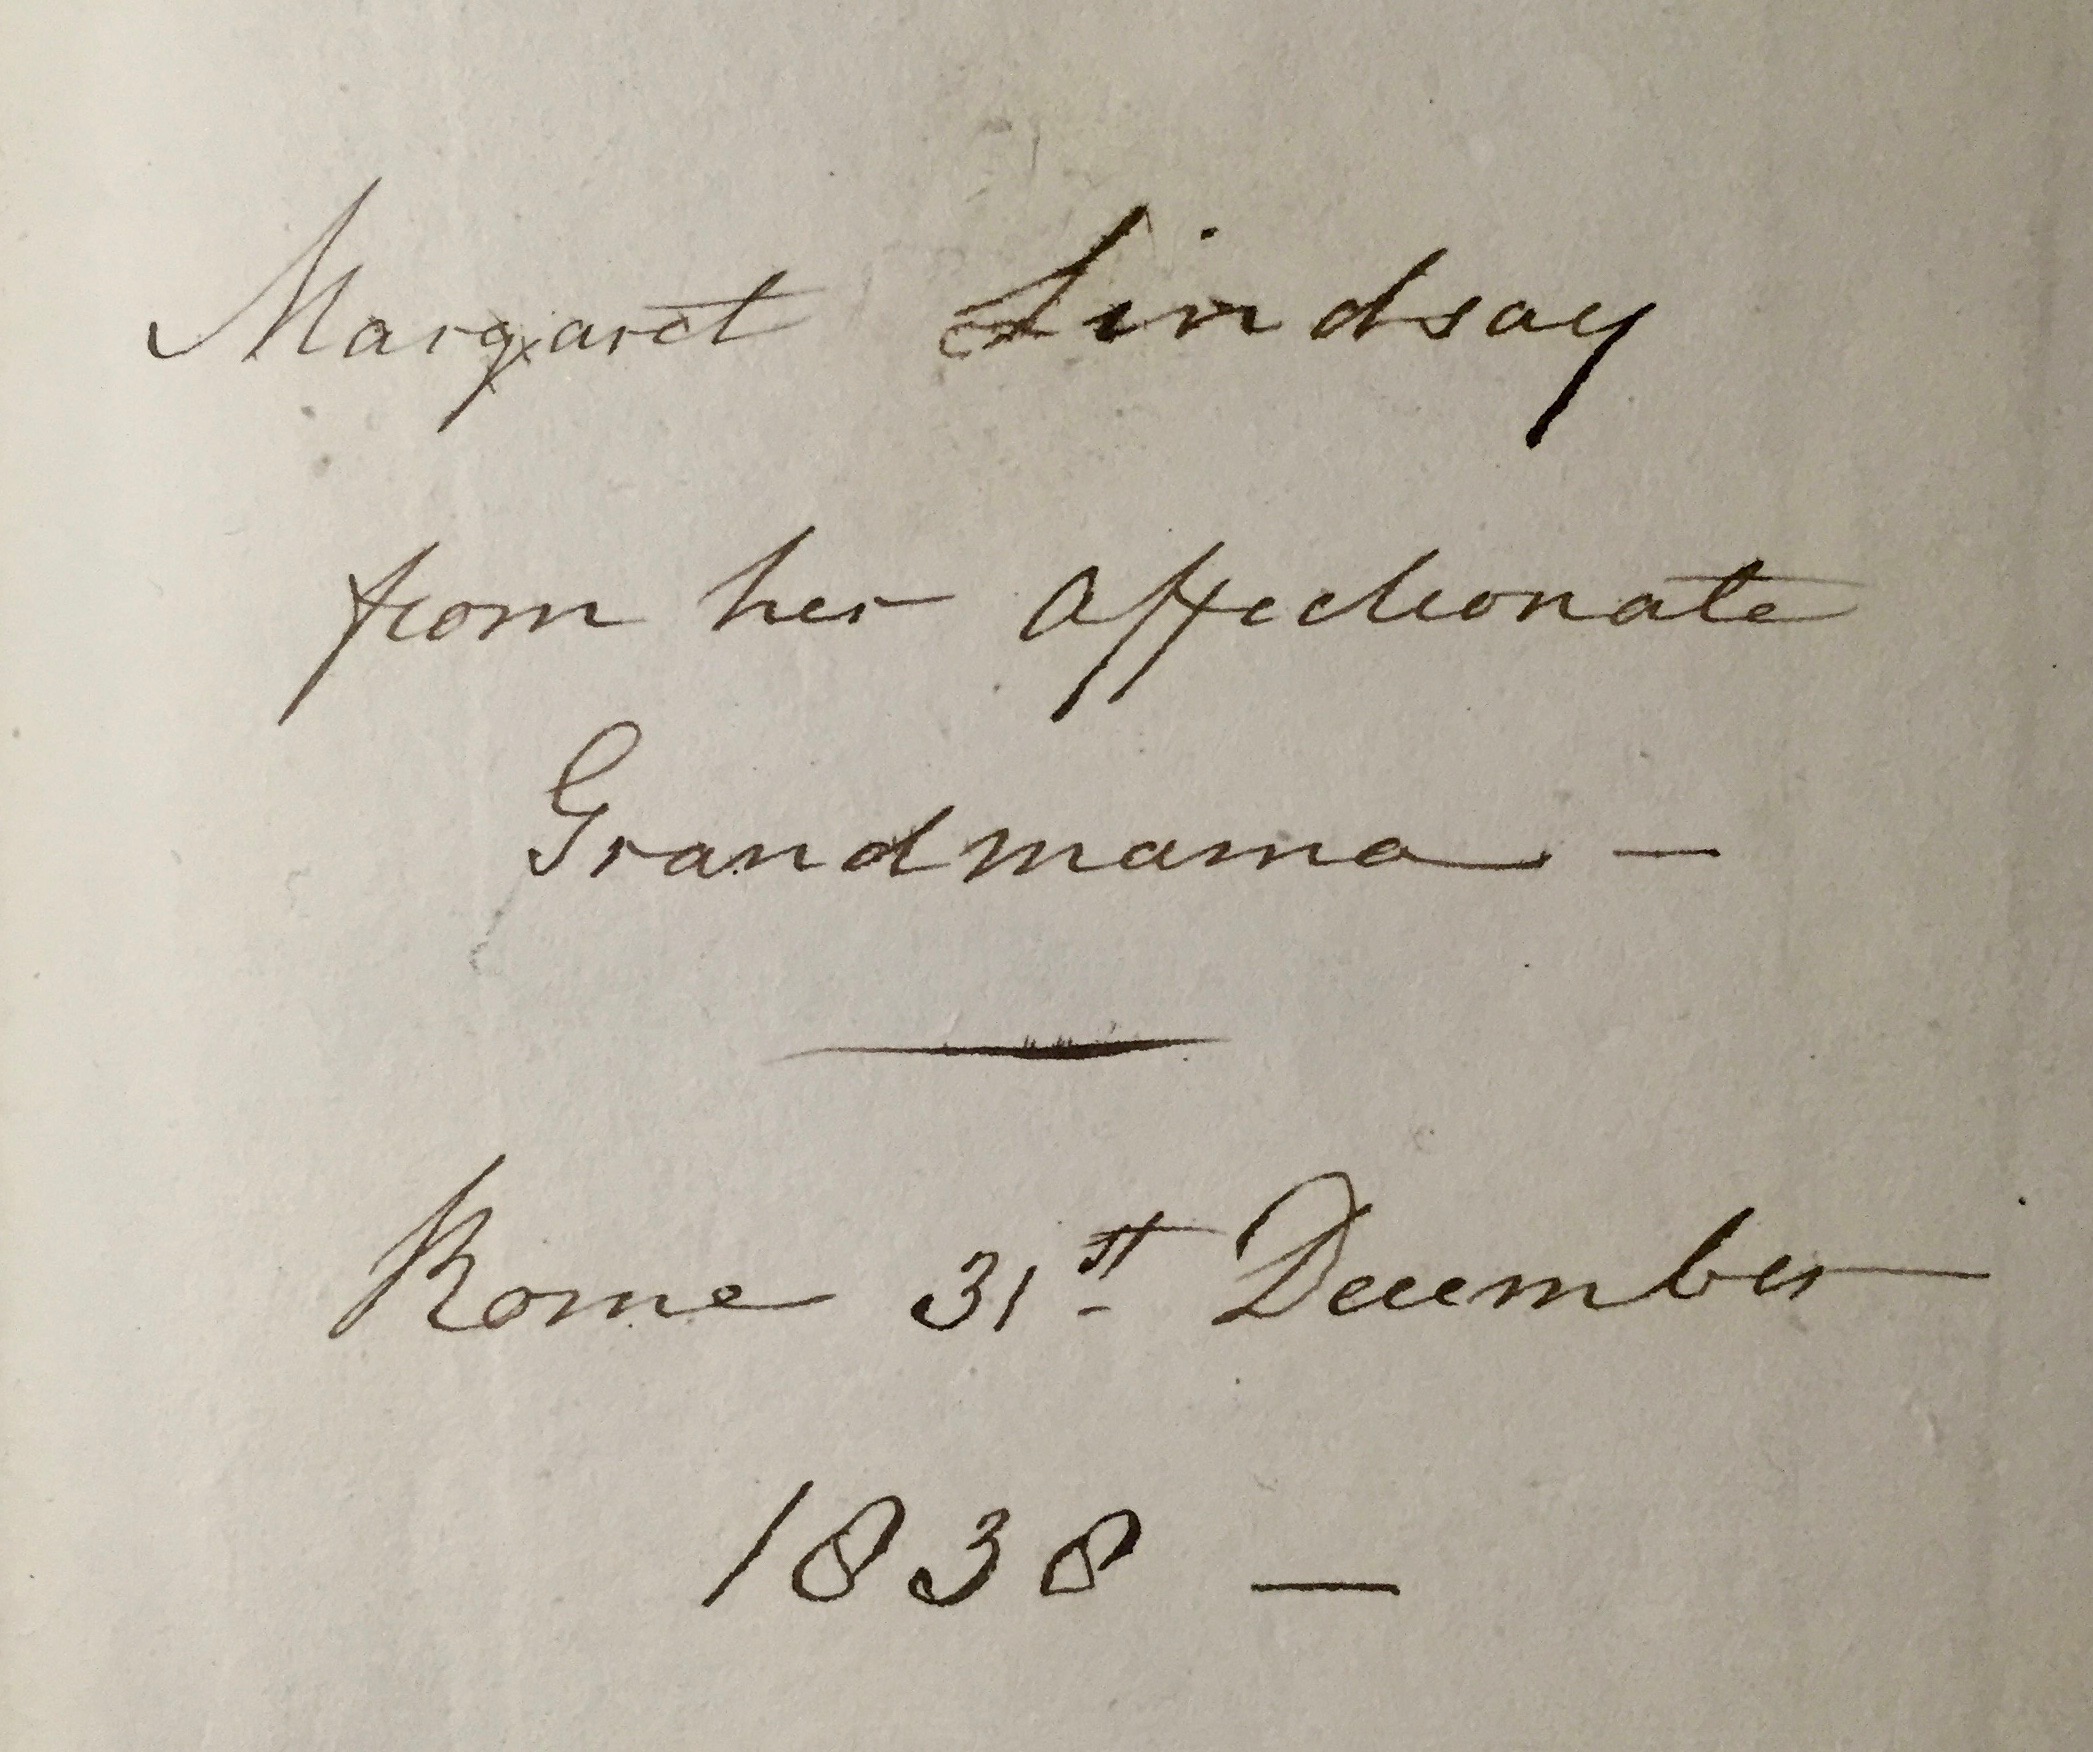 Margaret Lindsay
from her affectionate
Grandmama —
Rome 31st December
1838 —